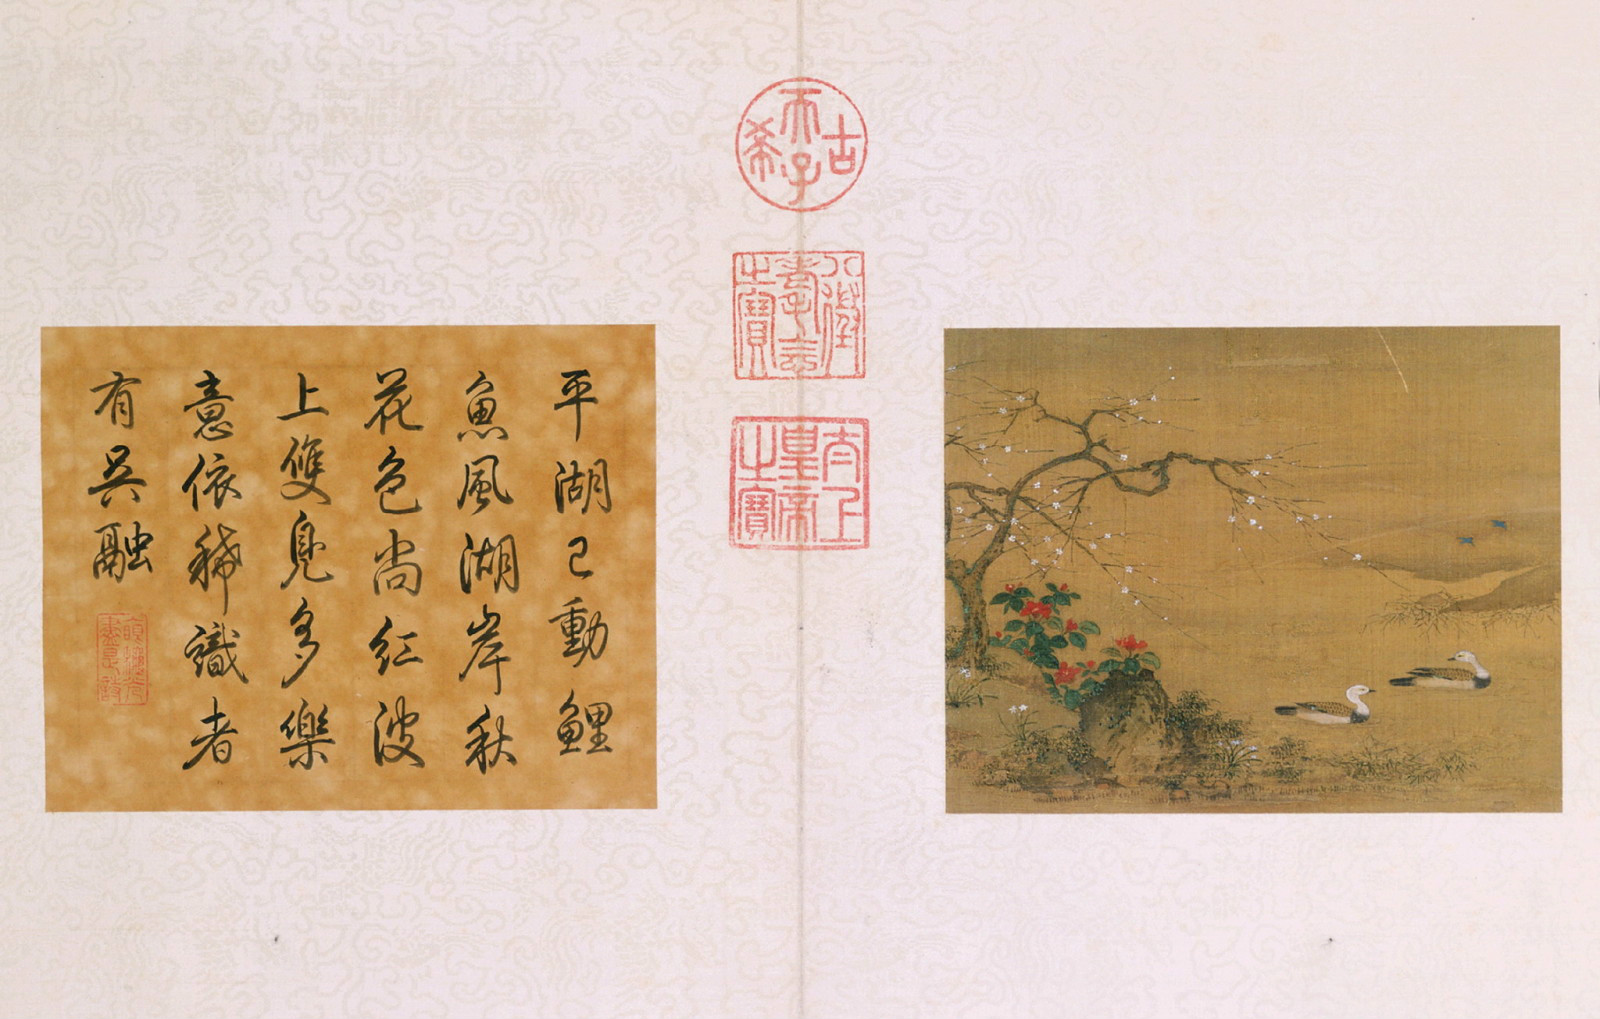 古希天子
八徵耄念之寶
太上皇帝之寶
平湖已動鯉
魚風湖岸秋
花色尚紅波
上雙鳧多樂
意依稀識者
有吳融